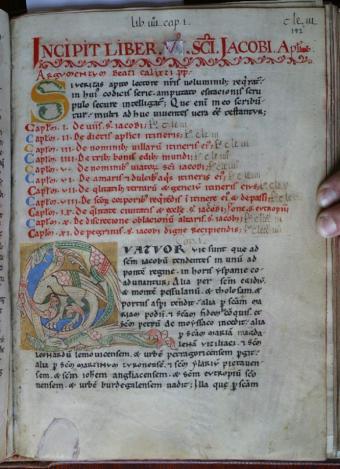 lib iiii cap i.
192
INCIPIT LIBER .V. SC̄I. IACOBI. Apłi
Argumentum beati calixti pp̄.
SI veritas apto lectore nr̄is voluminib; reqrat̃
in huiꝰ codicis serie. amputato esitacionis scru
pulo secure intelligat̃. Que eni in eo scribun
tur. multi adhuc viventes vera ēē testantur.
Capłm .I. de viis s̄. iacobi.
Capłm .II. de dietis aplici itineris.
Capłm .III. de nominib; villarū itineris
Capłm .IIII. de trib; bonis edib; mundi.
Capłm .V. de nominib; viator s̄ci iacobi.
Capłm .VI. de amaris ⁊ dulcib; aqis itineris
Capłm .VII. de qłitatib; terrarū & gentiū itineris
Capłm .VIII. de scōr corporib; reqrēdis i itinere
Capłm .IX. de qłitate civitatis & ecctę s. iacobi
Capłm .X. de discretione oblacionū altaris. s̄. iacobi
Capłm .XI. de pegrinis s̄. iacobi digne recipiendis
QUATUOR vie sunt que ad
sc̄m iacobū tendentes in unū ad
pontē regine. in horis yspanie co
adunantur. Alia per sc̄m egidiū.
& montē pessulanū. & tholosam. &
portus aspi tendit. alia p sc̄am ma
riam podii. ⁊ sc̄am fidem de conqis. et
sc̄m petrū de moyssaco incedit. alia
p sc̄am mariā magda
lenā viziliaci. ⁊ sc̄m
leonardū lemovicensem. & urbē petragoricensem pgit.
alia p sc̄m martinum turonensem. ⁊ sc̄m ylariū pictaven
sem. & sc̄m iohem angliacensem. & sc̄m eutropiū sco
nensem. & urbē burdegalensem vadit; Illa que p sc̄am